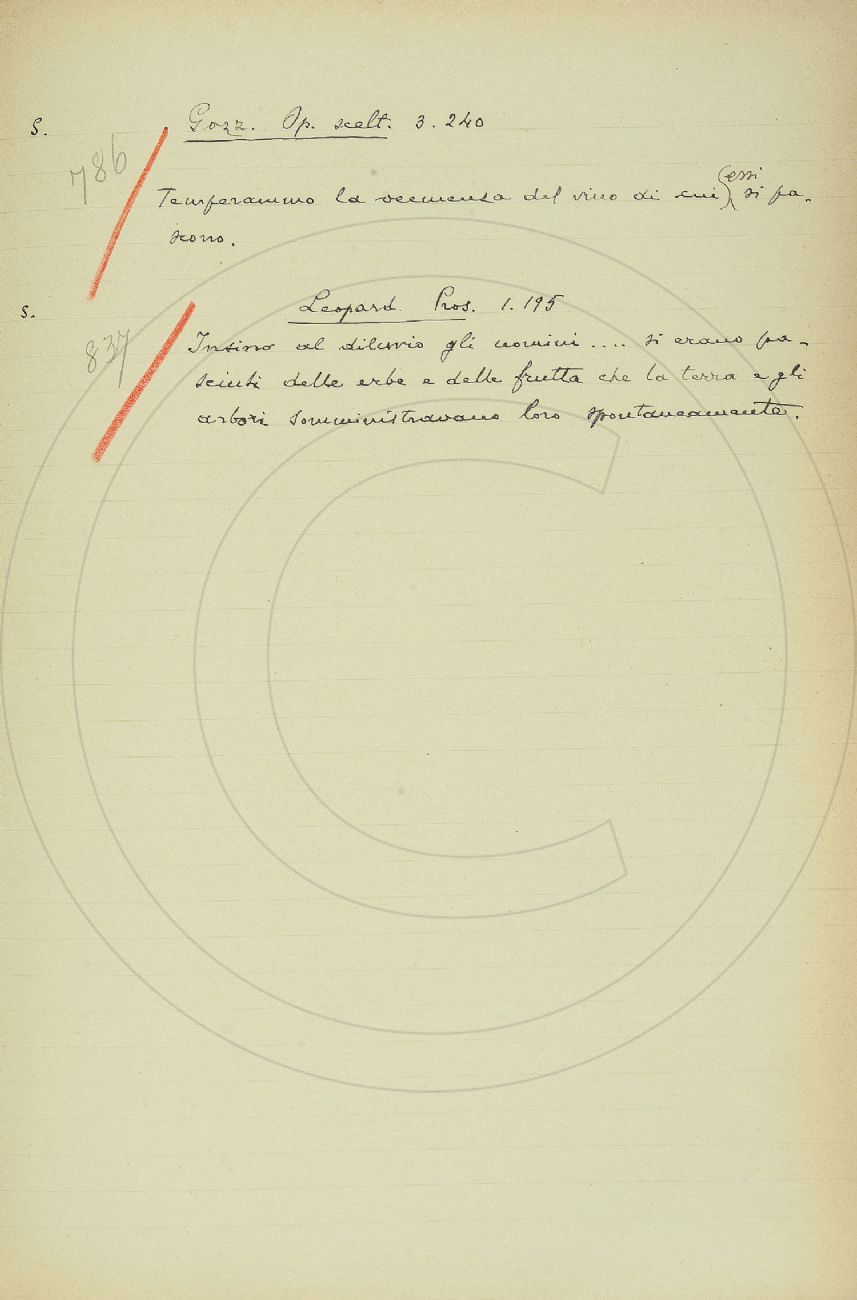 S. Gozz. Op. scelt. 3. 240
786
(essi
Temperammo la veemenza del vino di cui si pa-
scono.
S. Leopard. Pros. 1. 195
837
Insino al diluvio gli uomini .... si erano pa-
sciuti delle erbe e delle frutta che la terra e gli
arbori somministravano loro spontaneamente.